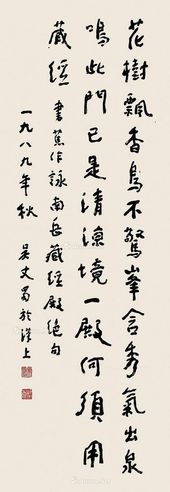 花樹飄香鳥不驚峯含秀氣出泉
鳴此門已是清涼境一殿何須用
藏經 書舊作詠南岳藏經殿絕句
一九八九年秋 吳丈蜀於漢上